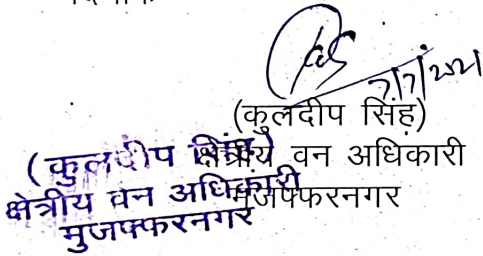 7/7/2021
(कुलदीप सिंह)
क्षेत्रीय वन अधिकारी
मुजफ्फरनगर
(कुलदीप सिंह)
क्षेत्रीय वन अधिकारी
मुजफ्फरनगर